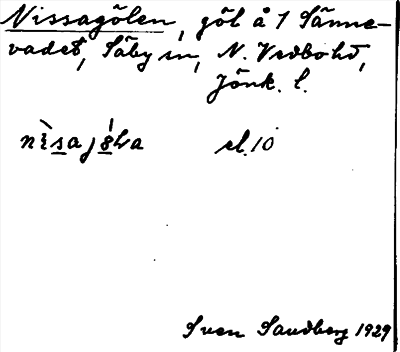 Nissagölen, göl å 1 Sänne-
vadet, Säby sn, N. Vedbohd,
Jönk. l.
sl. 10
Sven Sandberg 1929